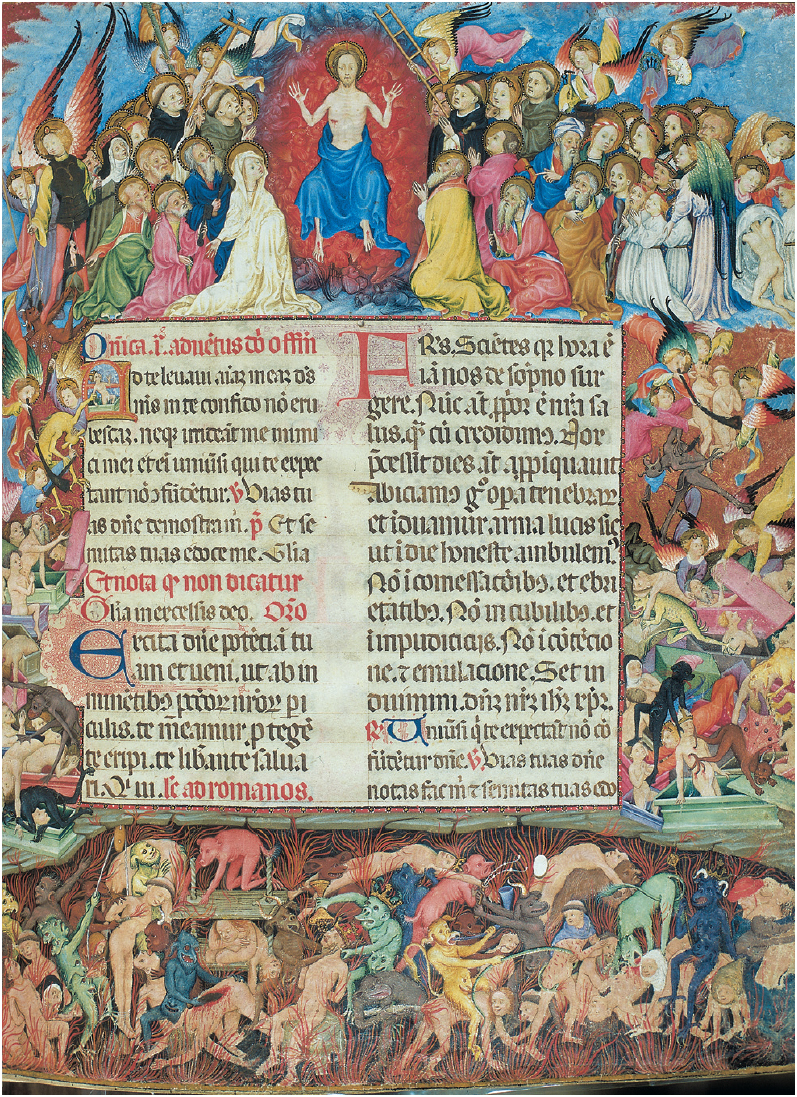 Dn̄ica. i. aduētus dn̄i offm̄
Ad te leuaui aīaꝫ meaꝫ ds̄
m̄s in te confido nō eru
bescaꝫ. neqꝫ irrideāt me inimi
ci mei etei̅ uniūsi qui te expec
tant nō cōfūdētur. ℣ Uias tu
as dn̄e demostra m̄. p̄. Et se
mitas tuas edoce me. Glīa
Et nota qͥ non dicatur
Glīa in excelsis deo. Orō
Excita dn̄e potēciā tu
am et ueni. ut ab in
minētibꝫ pctōꝝ nr̄oꝝ pi
culis. te meamur. ꝓ tegē
te eripi. te libāante salua
ri. Q̄ ui. lc̄ ad romanos.
Frs̄. Sciētes qꝛ hora ē
iā nos de sōpno sur
gere. Nūc. āt. ꝓpior ē nrā sa
lus. qͣꝫ cū credidimꝰ. Nox
p̄cessit dies. āt. apꝓpīquauit
abiciamꝰ gͦ. opa tenebraꝝ
et iduamur. arma lucis sic
ut i die honeste ambulemꝰ
Nō i comessacōibꝫ. et ebri
etatibꝫ. Nō in cubilibꝫ. et
impudiciciis. Nō i cōtēcio
ne. ⁊ emulacione. Set in
duimini. dn̄ꝫ nr̄ꝫ ihꝫ xp̄ꝫ.
℟ Uniūsi q̄ te expectāt nō cō
fūdētur dn̄e. ℣ Uias tuas dn̄e
notas fac m̄ ⁊ semitas tuas edo